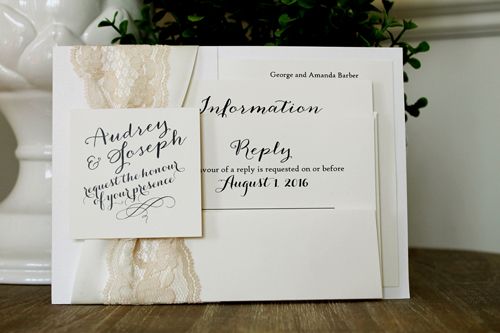 George and Amanda Barber
Information
Reply
avour of a reply is requested on or before
August 1, 2016
Audrey
& Joseph
request the honour
of your presence